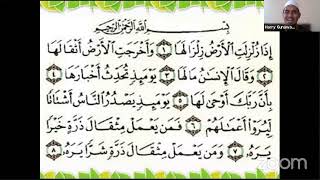 بِسْمِ اللَّهِ الرَّحْمَٰنِ الرَّحِيمِ
إِذَا زُلْزِلَتِ الْأَرْضُ زِلْزَالَهَا ١ وَأَخْرَجَتِ الْأَرْضُ أَثْقَالَهَا
٢ وَقَالَ الْإِنسَانُ مَا لَهَا ٣ يَوْمَئِذٍ تُحَدِّثُ أَخْبَارَهَا ٤
بِأَنَّ رَبَّكَ أَوْحَىٰ لَهَا ٥ يَوْمَئِذٍ يَصْدُرُ النَّاسُ أَشْتَاتًا
لِّيُرَوْا أَعْمَالَهُمْ ٦ فَمَن يَعْمَلْ مِثْقَالَ ذَرَّةٍ خَيْرًا
يَرَهُ ٧ وَمَن يَعْمَلْ مِثْقَالَ ذَرَّةٍ شَرًّا يَرَهُ ٨
zoom